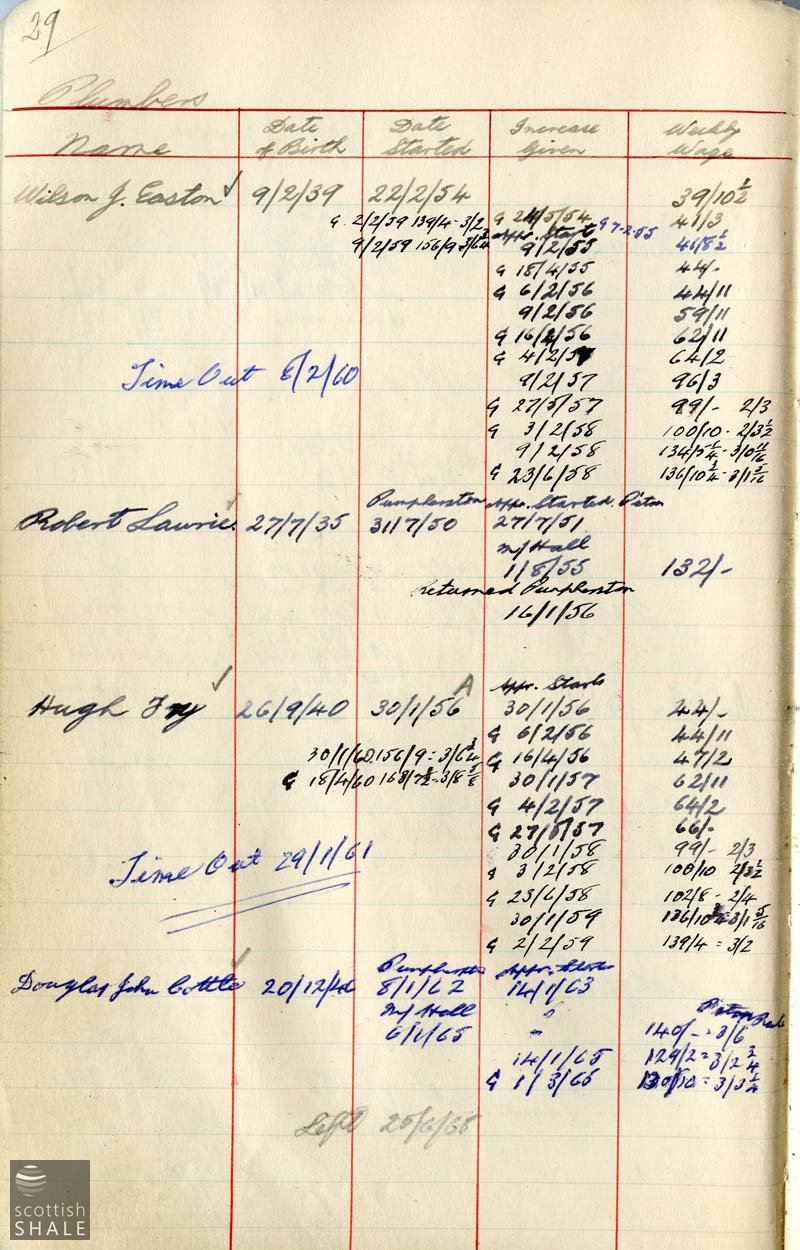 29
Plumbers
Name Date of Birth Date Started Increase Given Weekly Wage
Wilson J. Easton ✓ 9/2/39 22/2/54 39/10½
G 2/2/59 139/4 - 3/2 G 24/5/54 41/3
Appr. Start G 7-2-55
9/2/59 156/9 3/6¾ 9/2/55 41/8½
G 18/4/55 44/-
G 6/2/56 44/11
9/2/56 59/11
G 16/2/56 62/11
G 4/2/57 64/2
Time Out 8/2/60
9/2/57 96/3
G 27/5/57 99/- 2/3
G 3/2/58 100/10 - 2/3½
9/2/58 134/5¼ - 3/0 11/16
G 23/6/58 136/10¾ - 3/1 5/16
Pumpherston Appr. Started
Robert Lawrie ✓ 27/7/35 31/7/50 27/7/51
M/Hall
1/8/55 132/-
returned Pumpherston
16/1/56
Appr. Starts
Hugh Fry ✓ 26/9/40 30/1/56 A 30/1/56 44/-
G 6/2/56 44/11
30/1/60 156/9 = 3/6¾ G 16/4/56 47/2
G 18/4/60 163/7½ = 3/8⅝ 30/1/57 62/11
G 4/2/57 64/2
G 27/5/57 66/-
30/1/58 99/- 2/3
Time Out 29/1/61
G 3/2/58 100/10 2/3½
G 23/6/58 102/8 - 2/4
30/1/59 136/10¾ = 3/1 5/16
G 2/2/59 139/4 = 3/2
Pumpherston Appr. Started
Douglas John Cottle ✓ 20/12/46 8/1/62 14/1/63
M/Hall "
6/1/65 " 140/- = 3/6
14/1/65 129/2 = 3/2¾
G 1/3/65 130/10 = 3/3¼
Left 25/6/65
scottish
SHALE